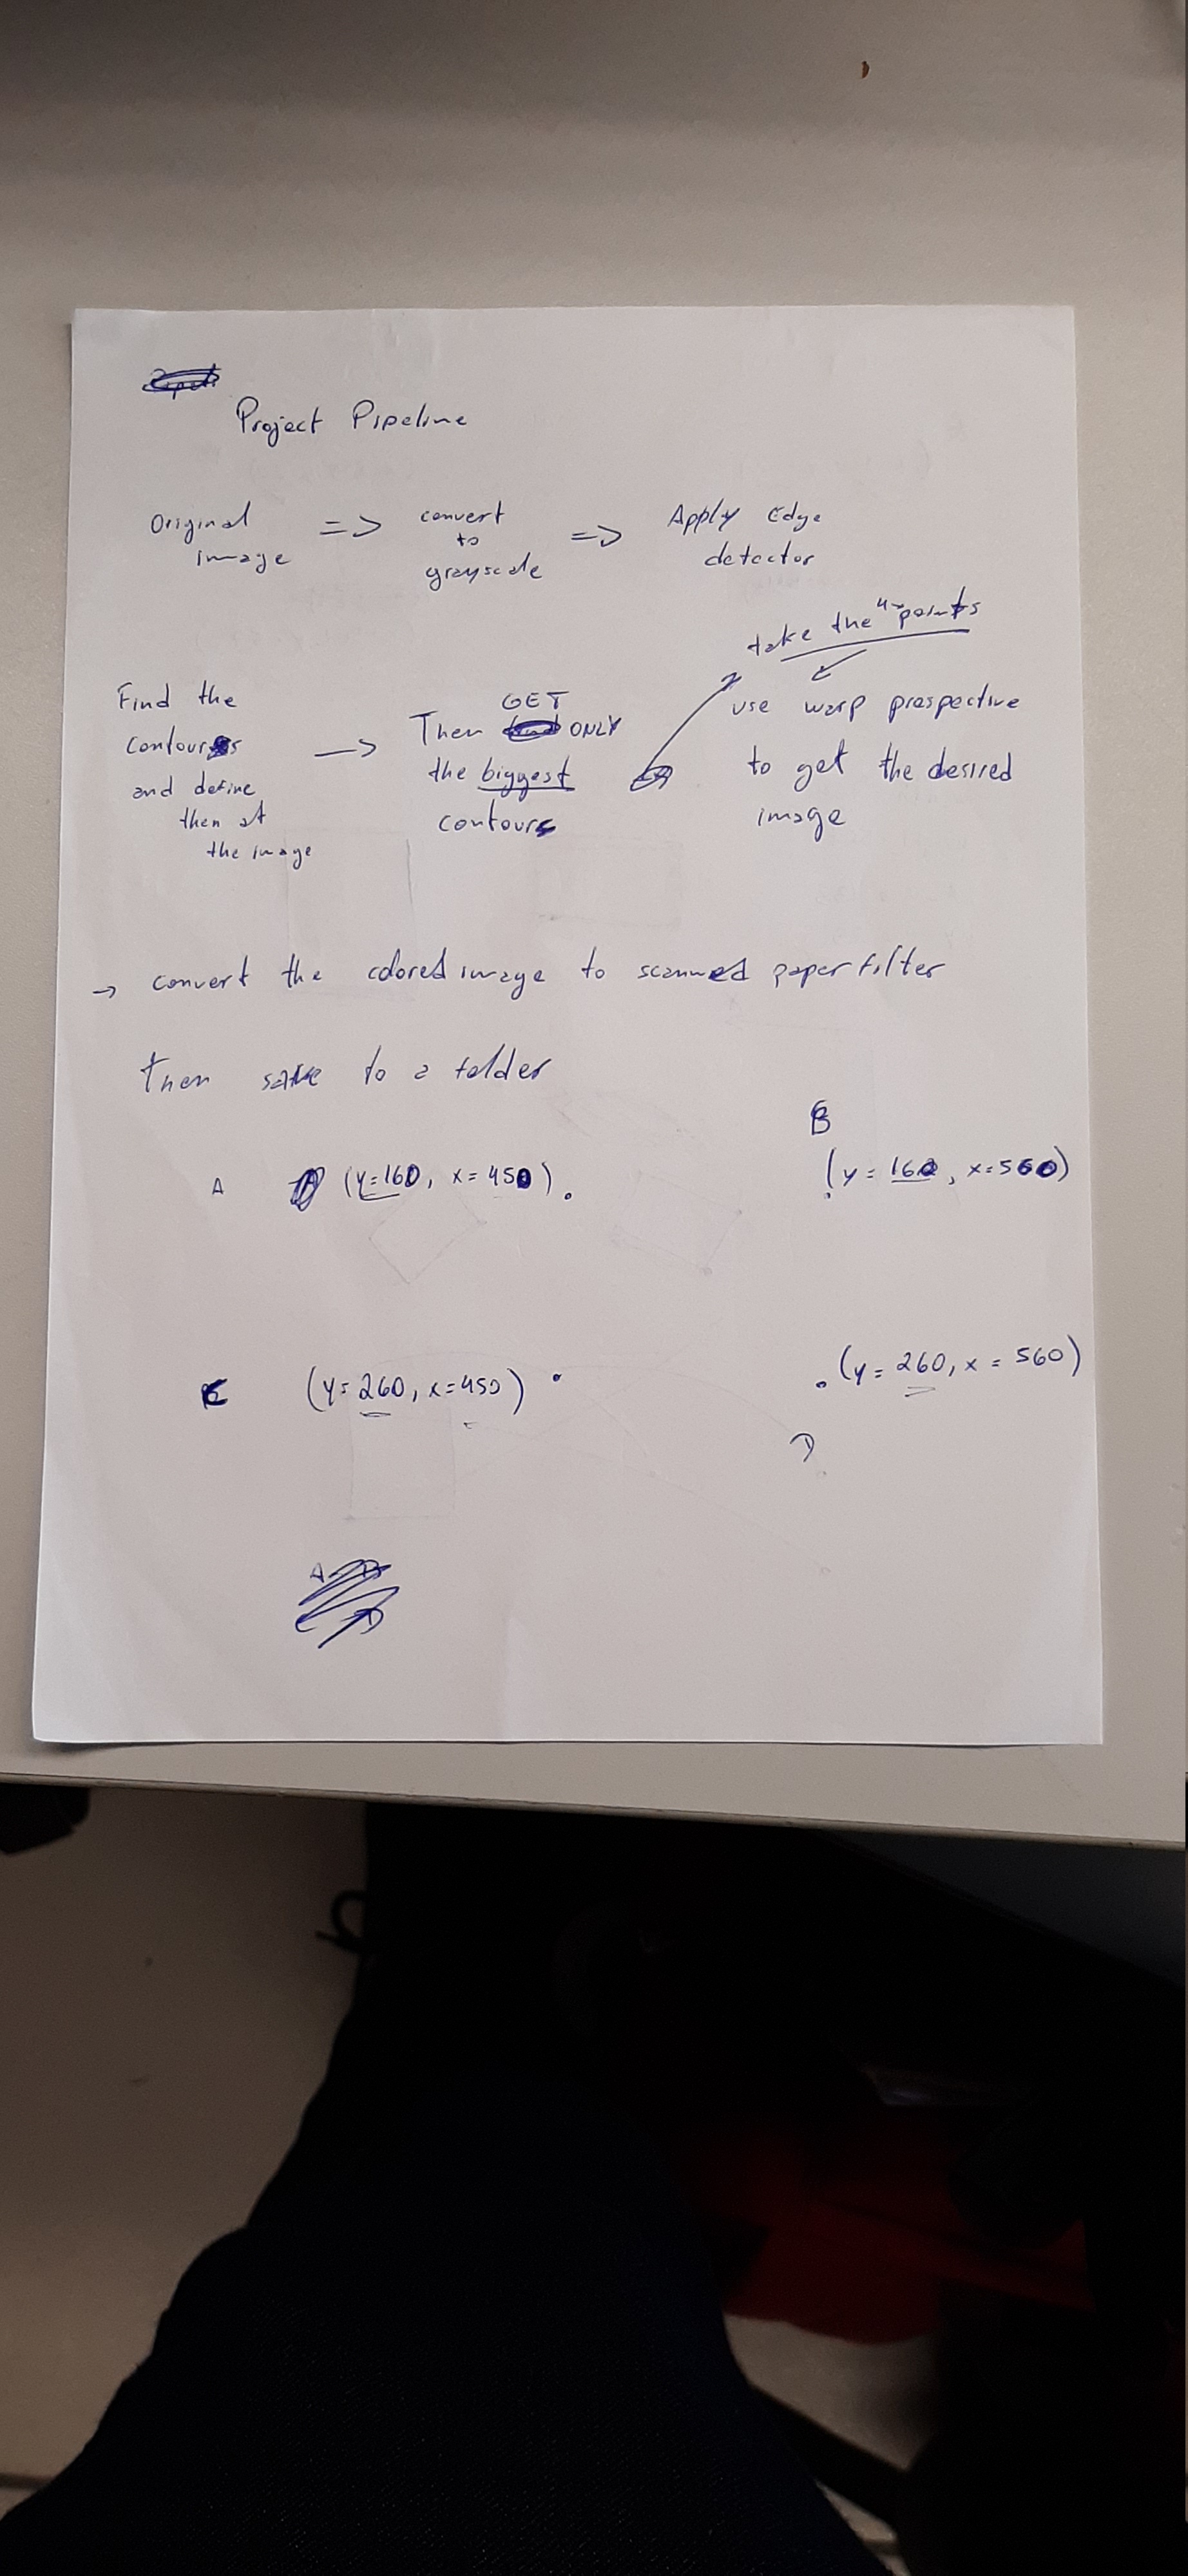 Project Pipeline
Original image => convert to grayscale => Apply Edge detector
take the 4 points
Find the contours and define then at the image -> Then GET ONLY the biggest contours
use warp prespective to get the desired image
-> convert the colored image to scanned paper filter
then save to a folder
B
A (y=160, x=450) . (y=160, x=560)
C (y=260, x=450) . (y=260, x=560)
D